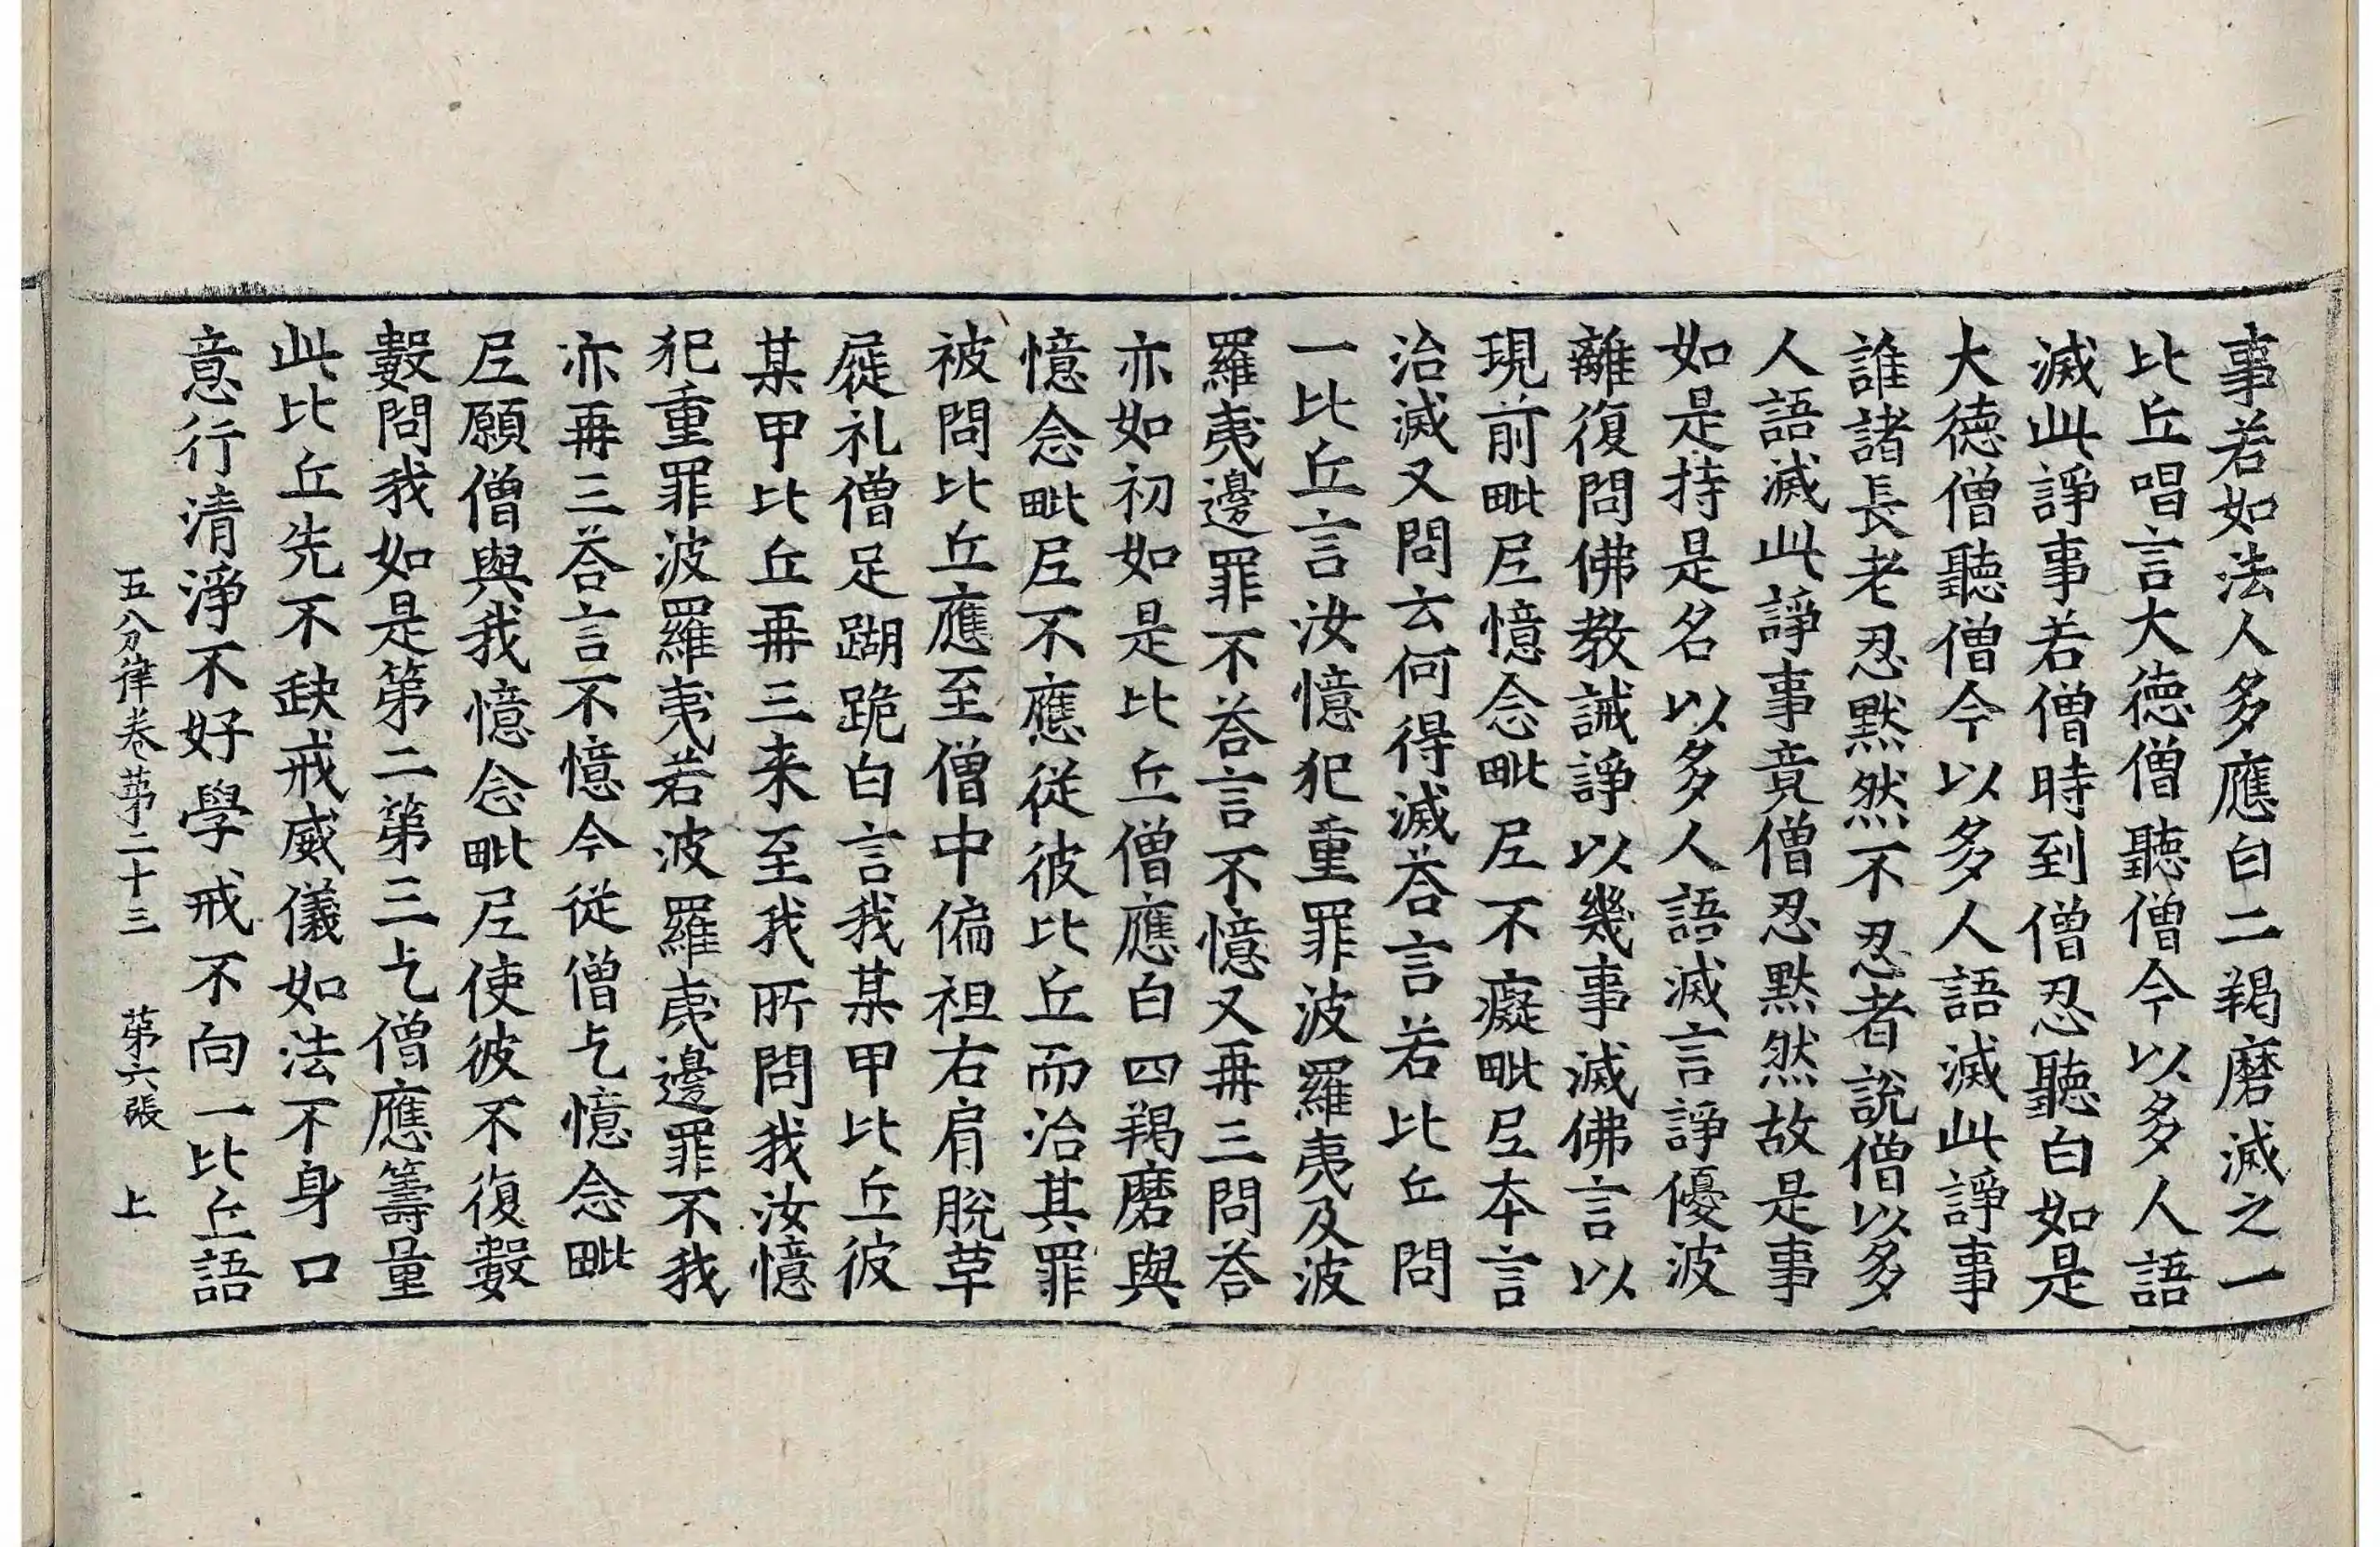 事若如法人多應白二羯磨滅之一
比丘唱言大徳僧聽僧今以多人語
滅此諍事若僧時到僧忍聽白如是
大徳僧聽僧今以多人語滅此諍事
誰諸長老忍黙然不忍者說僧以多
人語滅此諍事竟僧忍黙然故是事
如是持是名以多人語滅言諍優波
離復問佛教誡諍以幾事滅佛言以
現前毗𡰱憶念毗𡰱不癡毗𡰱本言
治滅又問云何得滅荅言若比丘問
一比丘言汝憶犯重罪波羅夷及波
羅夷邊罪不荅言不憶又再三問荅
亦如初如是比丘僧應白四羯磨與
憶念毗𡰱不應從彼比丘而治其罪
被問比丘應至僧中偏袒右肩脫草
屣礼僧足䠒跪白言我某甲比丘彼
某甲比丘再三来至我所問我汝憶
犯重罪波羅夷若波羅夷邊罪不我
亦再三荅言不憶今從僧乞憶念毗
𡰱願僧與我憶念毗𡰱使彼不復數
數問我如是第二第三乞僧應籌量
此比丘先不缺戒威儀如法不身口
意行清淨不好學戒不向一比丘語
五分律卷第二十三 第六張 上